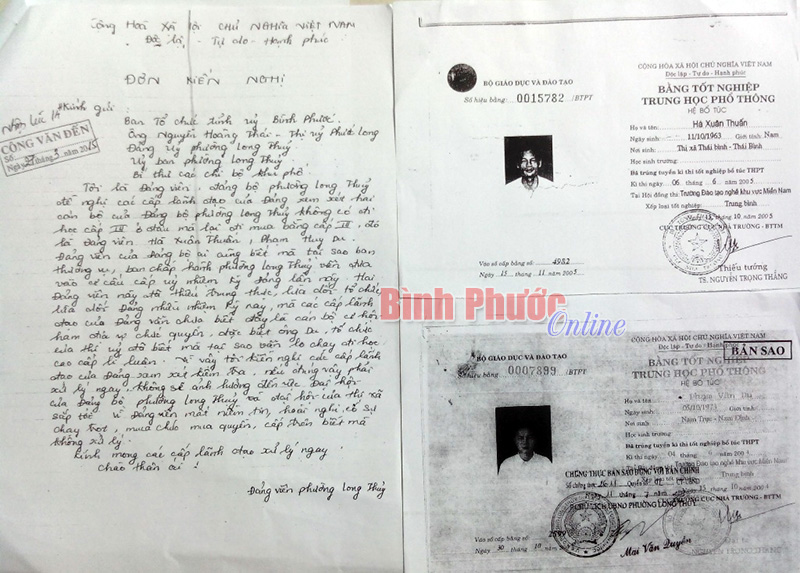 Cộng Hoà Xã Hội Chủ Nghĩa Việt Nam
Độc lập - Tự do - Hạnh phúc
ĐƠN KIẾN NGHỊ
Kính gửi :
Ban Tổ chức tỉnh uỷ Bình Phước.
Ông Nguyễn Hoàng Thái - Thị uỷ Phước Long
Đảng uỷ phường Long Thuỷ
Uỷ ban phường Long Thuỷ
Bí thư các chi bộ khu phố
CÔNG VĂN ĐẾN
Tôi là Đảng viên, đảng bộ phường Long Thuỷ
đề nghị các cấp lãnh đạo của Đảng xem xét hai
cán bộ của Đảng bộ phường Long Thuỷ không có đi
học cấp III ở đâu mà lại đi mua bằng cấp III, đó
là Đảng viên Hà Xuân Thuấn, Phạm Huy Du.
Đảng viên của Đảng bộ ai cũng biết mà tại sao ban
thường vụ, ban chấp hành phường Long Thuỷ vẫn đưa
vào cơ cấu cấp uỷ nhiệm kỳ Đảng lần này. Hai
Đảng viên này đã thiếu trung thực, lừa dối tổ chức
lừa dối Đảng nhiều nhiệm kỳ nay, mà các cấp lãnh
đạo của Đảng vẫn chưa biết đây là cán bộ cơ hội
ham địa vị chức quyền, được biết ông Du, tổ chức
của thị uỷ đã biết mà tại sao vẫn lo chạy đi học
cao cấp lý luận. Vì vậy tôi kiến nghị các cấp lãnh
đạo của Đảng xem xét kiểm tra, nếu đúng vậy phải
xử lý ngay, không sẽ ảnh hưởng đến Đại hội
của Đảng bộ phường Long Thuỷ và đại hội của thị xã
sắp tới vì Đảng viên mất niềm tin, hoài nghi có sự
chạy chọt, mua chức mua quyền, cấp trên biết mà
không xử lý.
Kính mong các cấp lãnh đạo xử lý ngay.
Chào thân ái !
Đảng viên phường Long Thuỷ
BỘ GIÁO DỤC VÀ ĐÀO TẠO
Số hiệu bằng: 0015782 /BTPT
Vào sổ cấp bằng số: 4982
Ngày 15 tháng 11 năm 2005
CỘNG HÒA XÃ HỘI CHỦ NGHĨA VIỆT NAM
Độc lập - Tự do - Hạnh phúc
BẰNG TỐT NGHIỆP
TRUNG HỌC PHỔ THÔNG
HỆ BỔ TÚC
Họ và tên: Hà Xuân Thuấn
Ngày sinh: 11/10/1963 Giới tính: Nam
Nơi sinh: Thị xã Thái bình - Thái Bình
Học sinh trường:
Đã trúng tuyển kì thi tốt nghiệp bổ túc THPT
Kì thi ngày 06 tháng 6 năm 2005
Tại Hội đồng thi Trường Đào tạo nghề khu vực Miền Nam
Xếp loại tốt nghiệp: Trung bình
tháng 10 năm 2005
CỤC TRƯỞNG CỤC NHÀ TRƯỜNG - BTTM
Thiếu tướng
TS. NGUYỄN TRỌNG THẮNG
Bình Phước
Online
BỘ GIÁO DỤC VÀ ĐÀO TẠO
Số hiệu bằng: 0007899 /BTPT
CỘNG HÒA XÃ HỘI CHỦ NGHĨA VIỆT NAM
Độc lập - Tự do - Hạnh phúc
BẢN SAO
BẰNG TỐT NGHIỆP
TRUNG HỌC PHỔ THÔNG
HỆ BỔ TÚC
Họ và tên:
Ngày sinh: Giới tính:
Nơi sinh: Nam Trực - Nam Định
Học sinh trường:
Đã trúng tuyển kì thi tốt nghiệp bổ túc THPT
Trường Đào tạo nghề khu vực Miền Nam
Trung bình
CHỨNG THỰC BẢN SAO ĐÚNG VỚI BẢN CHÍNH
tháng 10 năm 2005
CỤC NHÀ TRƯỜNG - BTTM
UBND PHƯỜNG LONG THỦY
Vào sổ cấp bằng số:
Mai Văn Quyền